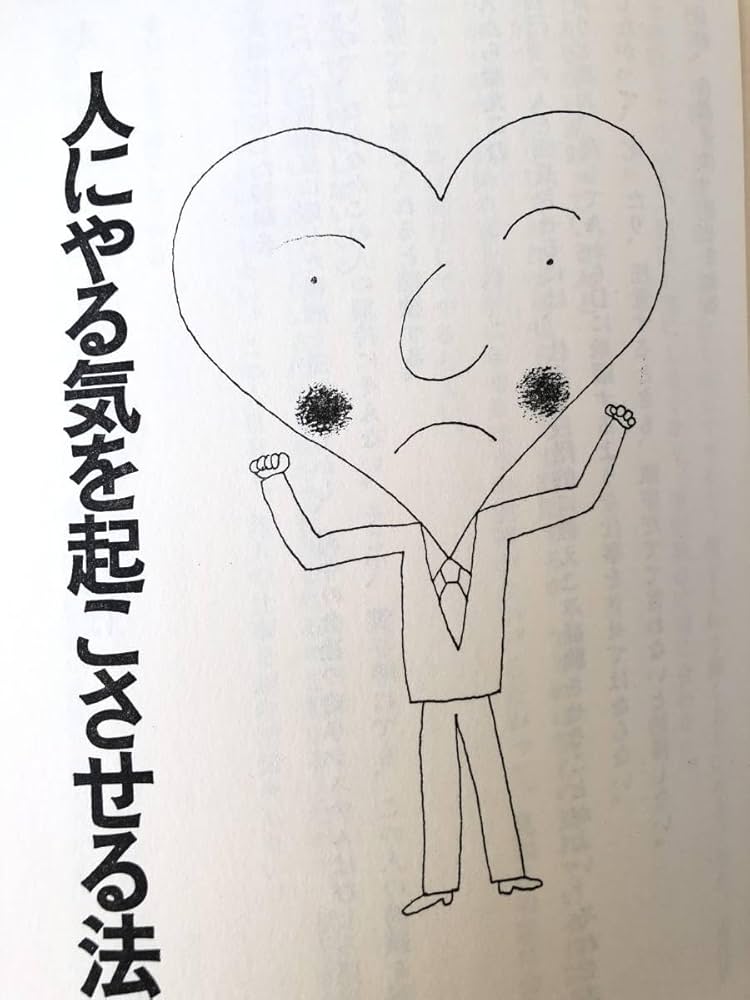 人にやる気を起こさせる法